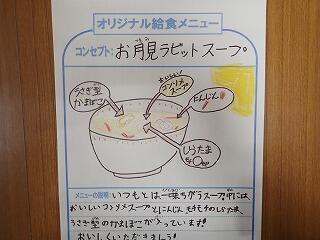 オリジナル給食メニュー
コンセプト: お月見ラビットスープ
うさぎ型
かまぼこ
おいしい
コンソメ
スープ
にんじん
しらたま
メニューの説明: いつもとは一味ちがうスープ。中には、
おいしいコンソメスープとにんじん、モチモチのしらたま、
うさぎ型のかまぼこが入っています!
おいしくいただきましょう!